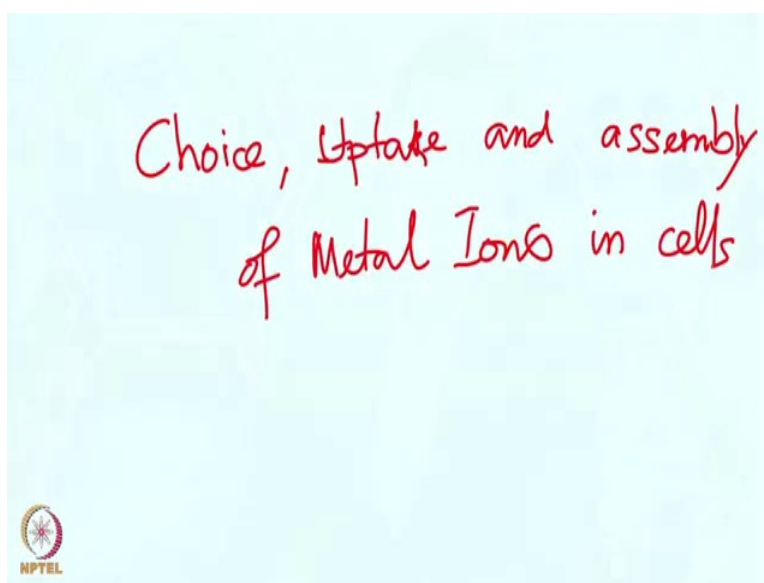 Choice, Uptake and assembly
of Metal Ions in cells
NPTEL